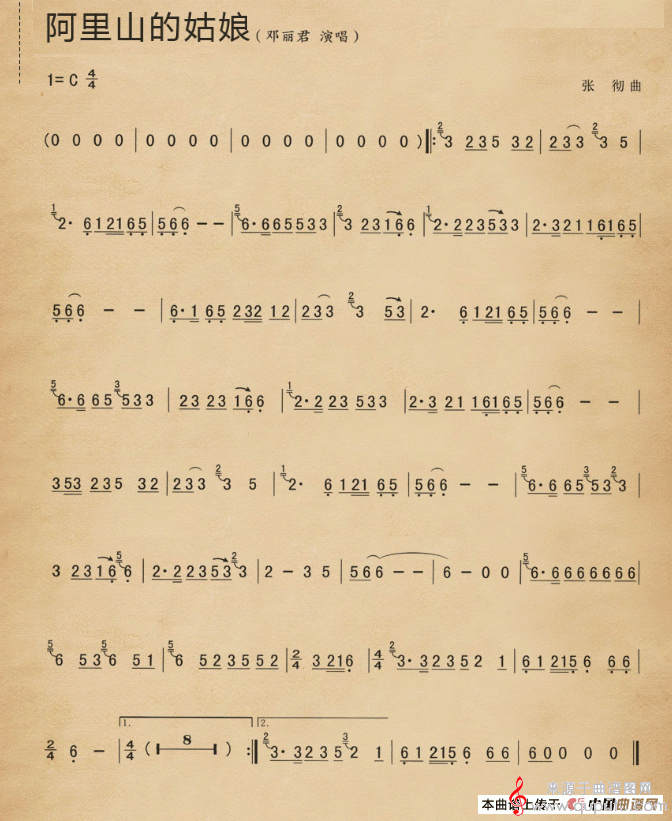 阿里山的姑娘（邓丽君 演唱）
1=C 4/4
张 彻 曲
(0 0 0 0 | 0 0 0 0 | 0 0 0 0 | 0 0 0 0 )‖: 2 3 235 32 | 233 2 3 5 |
1 2· 6 12165 | 566 - - | 5 6·665533 | 2 3 23166 | 1 2·223533 | 2·32116165 |
566 - - | 6·1 65 232 12 | 233 2 3 53 | 2· 6 12165 | 566 - - |
5 6·6 65 3 533 | 23 23 166 | 1 2·2 23 533 | 2·3 21 16165 | 566 - - |
353 235 32 | 233 2 3 5 | 1 2· 6 121 65 | 566 - - | 5 6·6 65 3 53 2 3 |
3 2316 5 6 | 2·22353 2 3 | 2 - 3 5 | 566 - - | 6 - 0 0 | 5 6·6666666 |
5 6 53 5 6 51 | 5 6 523552 | 2/4 3 216 | 4/4 2 3·32352 1 | 61 215 6 66 |
2/4 6 - | 1. 4/4 ( 8 ) :‖ 2. 2 3·3235 3 2 1 | 61 2156 66 | 600 0 0 ‖
来源于曲谱网
本曲谱上传于 中国曲谱网